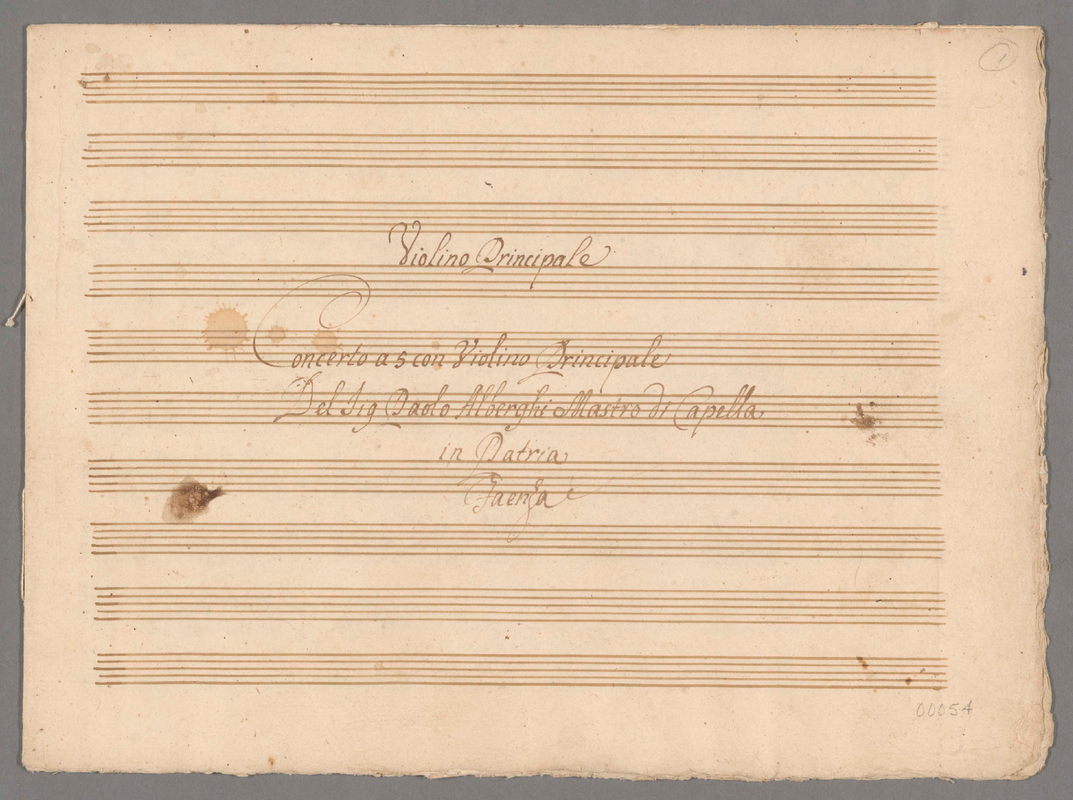 1
Violino Principale
Concerto a 5 con Violino Principale
Del Sig Paolo Alberghi Mastro di Capella
in Patria
Faenza
00054